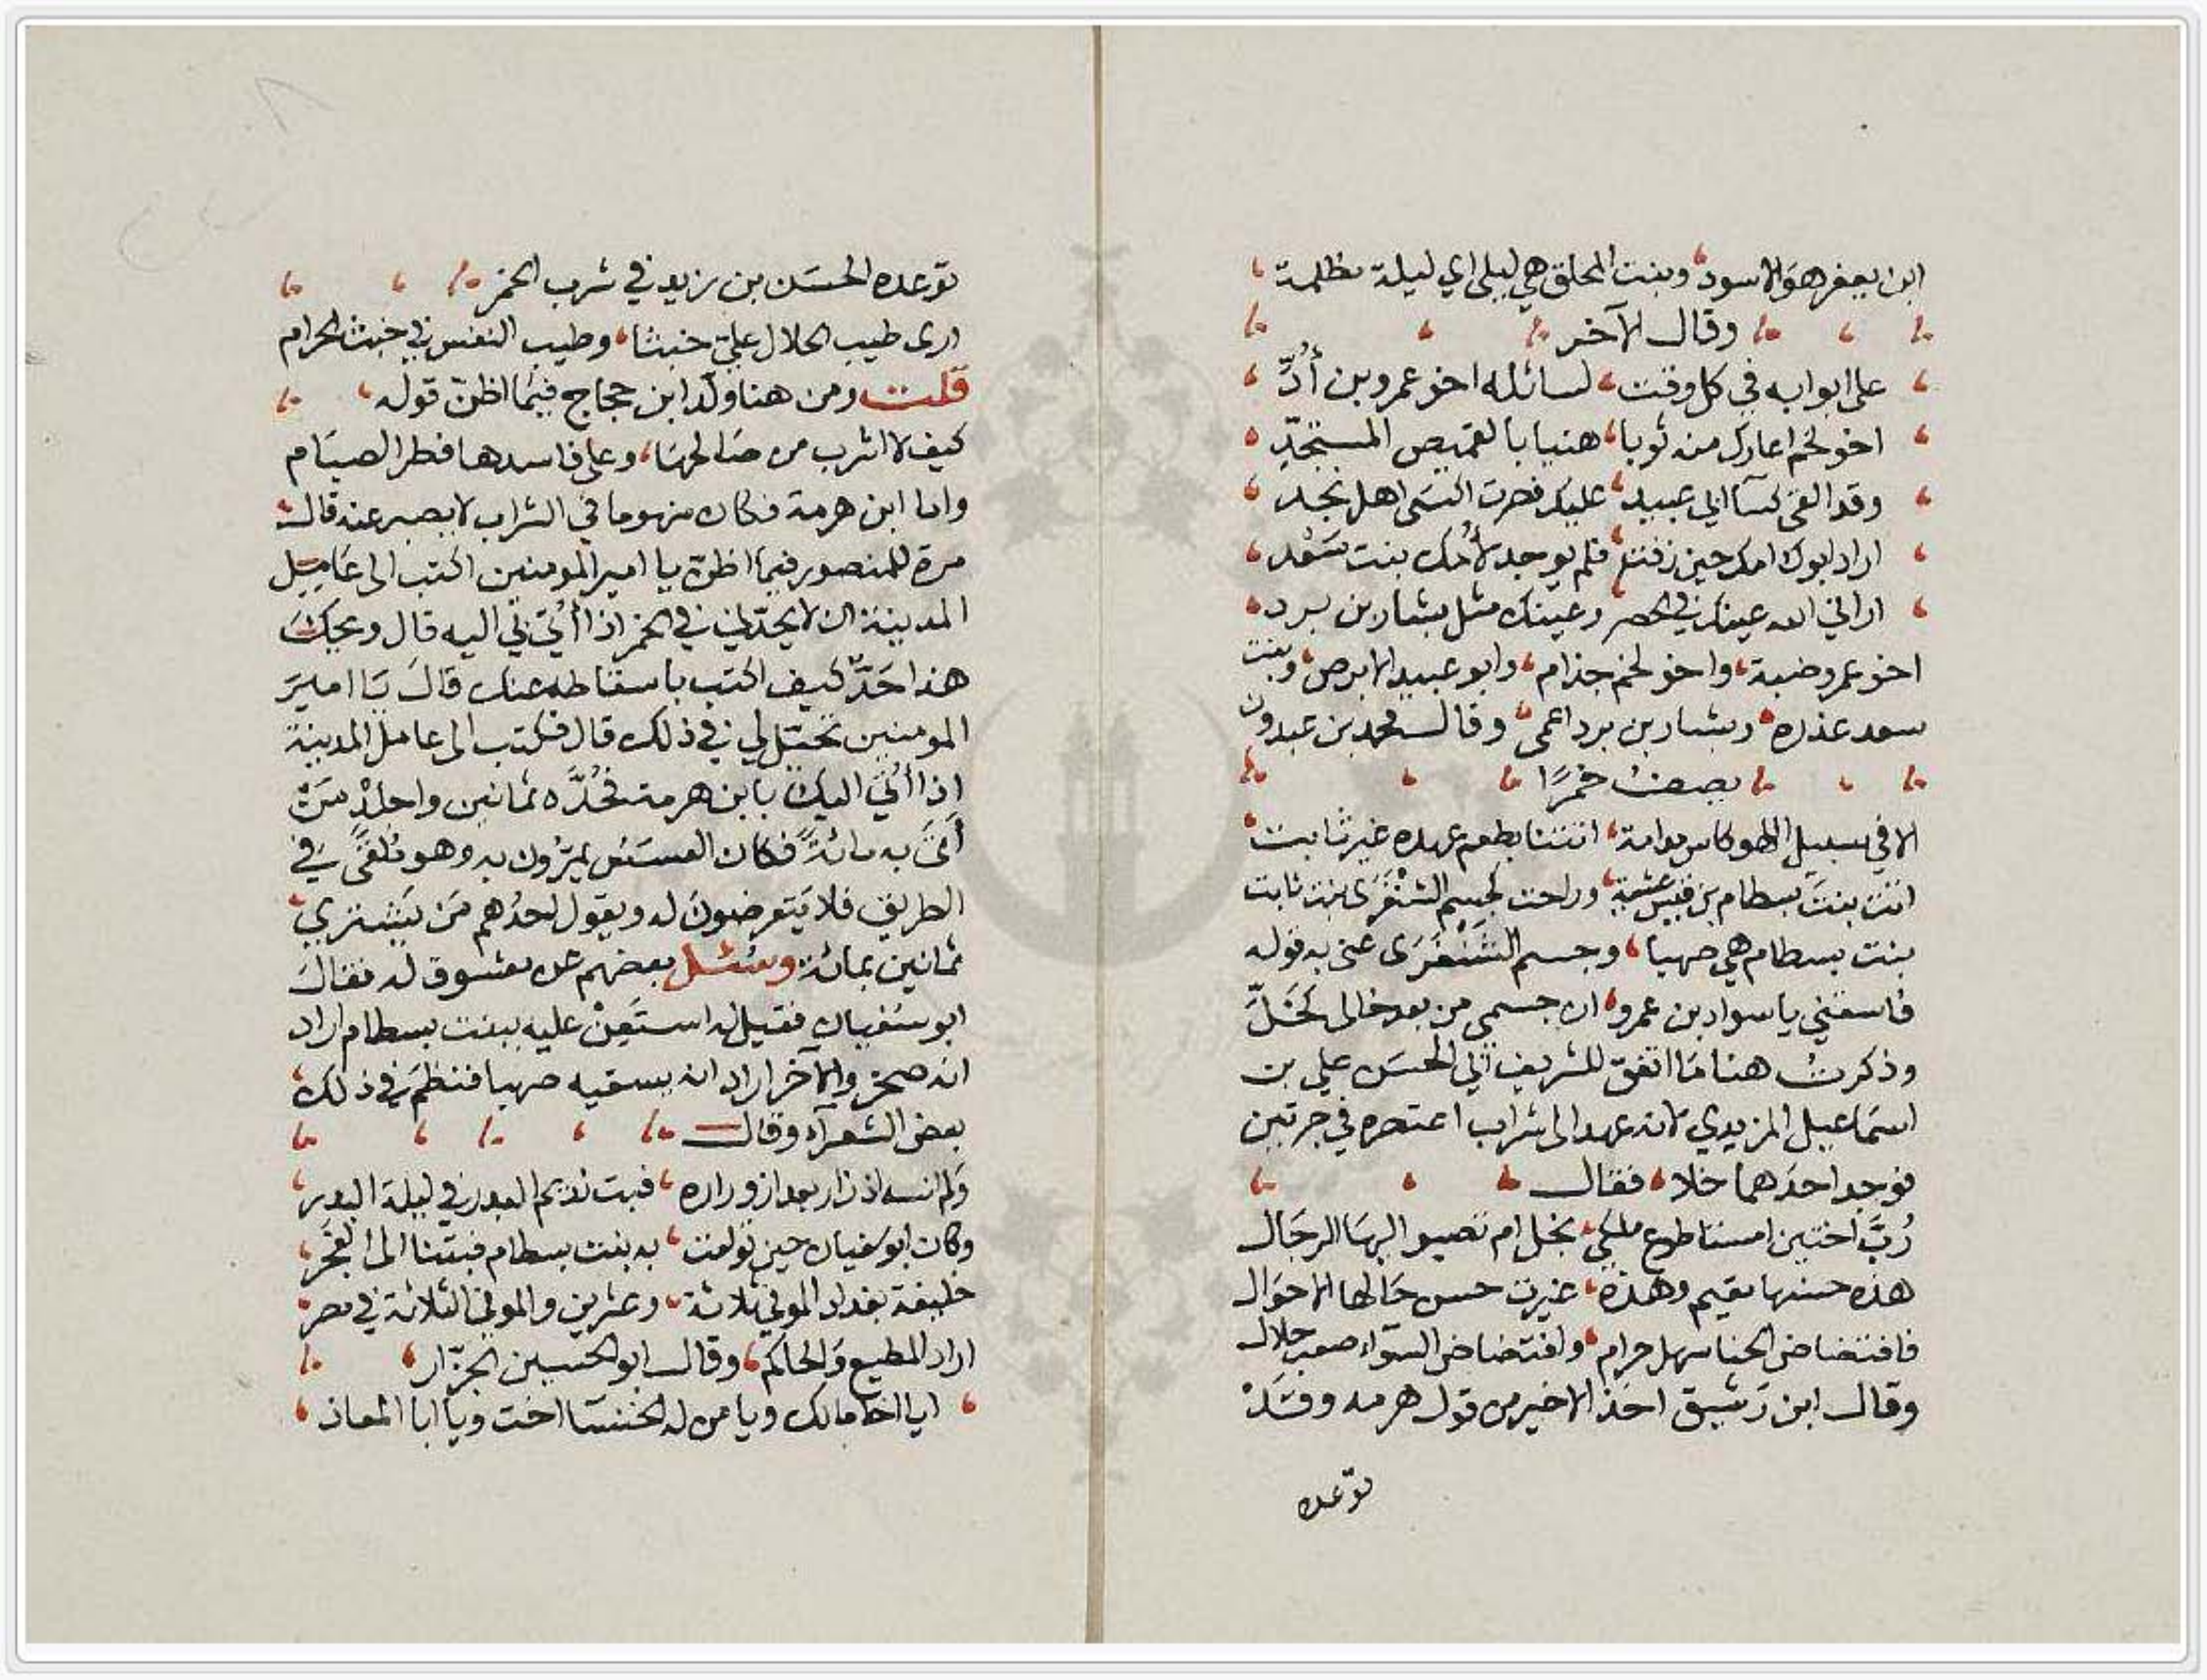 ابن يعفر هو الاسود وبنت المحلق هي ليلى اي ليلة مظلمة
وقال الآخر
على ابوابه في كل وقت لسائله اخو عمرو بن أُدّ
اخو لخم اعارك منه ثوبا هنيا بالقميص المستجدّ
وقد القى كسآ ابي عبيد عليك فصرت اكسى اهل نجد
اراد ابوك امك حين زفت فلم يوجد لأُمك بنت سَعْد
اراني الله عينك في وعينك مثل بشار بن برد
اخو عمرو ضبة واخو لخم جذام وابو عبيد الابرص وبنت
سعد عذره وبشار بن برد اعمى وقال محمد بن عبدون
يصف خمرًا
الا في سبيل اللهو كاس مدامة اتتنا بطعم عهده غير ثابت
اتت بنت بسطام بن قيس عشية وراحت كجسم الشَنْفَرَى بنت ثابت
بنت بسطام هي صهبا وجسم الشَنْفَرَى عنى به قوله
فاسقنيى يا سواد بن عمرو ان جسمى من بعد خالى لخَلّ
وذكرت هنا مَا اتفق للشريف ابي الحسَن علي بن
اسمَاعيل الزيدي لانه عهد الى شراب اعتصره في جرتين
فوجد احدَهما خلا فقال
رُبَّ اختين امستا طوع ملكى بخل ام تصبو اليهَا الرجَال
هذه حسنها مقيم وهذه غيرت حسن حَالها الاحوَال
فافتضاض الحنا سهل حرام وافتضاض السوآء صعب حلال
وقال ابن رَشيق اخذ الاخير من قول هرمه وقَدْ
توّعده
توّعده الحسَن بن زيد في شرب الخمر
ارى طيب الحلال عليّ خبثا وطيب النفس في خبث الحرام
قلت ومن هنا ولّد ابن حجاج فيمَا اظنّ قوله
كيف لا اشرب من صَالحهَا وعلى فاسدها فطر الصيَام
واما ابن هرمة فكان منهوما في الشراب لا يصبر عنه قال
مرة للمنصور فيمَا اظن يا امير المومنين اكتب الى عَامِل
المدينة ان لا يحدّني في الخمر اذا أُتِيَ بي اليه قال ويحكَ
هذا حَدّ كيف اكتب باسقاطه عنك قالَ يَا اميرَ
المومنين تحيّل لي في ذلك قال فكتب الى عامل المدينة
اذا أُتيَ اليك بابن هرمة فحُدَّه ثمانين واجلدْ مَنْ
أَتَى به مائةً فكان العسَس يمرّون به وهو مُلقىً في
الطريق فلا يَتعرضونَ له ويقول احدُهم مَن يَشتري
ثمانين بمائة وسُئل بعضهم عن معشوق له فقالَ
ابو سُفيان فقيل له استَعِنْ عليه ببنت بسطام اراد
انه صخر والآخر اراد ان يسقيه صهبا فنظمَ في ذلك
بعض الشعرآء وقال
وَلم انسه اذ زار بعد ازوراره فبت نديم البدر في ليلة البدر
وكان ابو سفيان حين تولعت به بنت بسطام فبتنا الى الفجَر
خليفة بغداد الموفي ثلاثة وعشرين والموفى الثلاثة في مصر
اراد المطيع وَالحاكم وقال ابو الحسين الجزّار
ايا اخَا مالك ويا من له الخنسَا اخت ويا ابا المعاذ